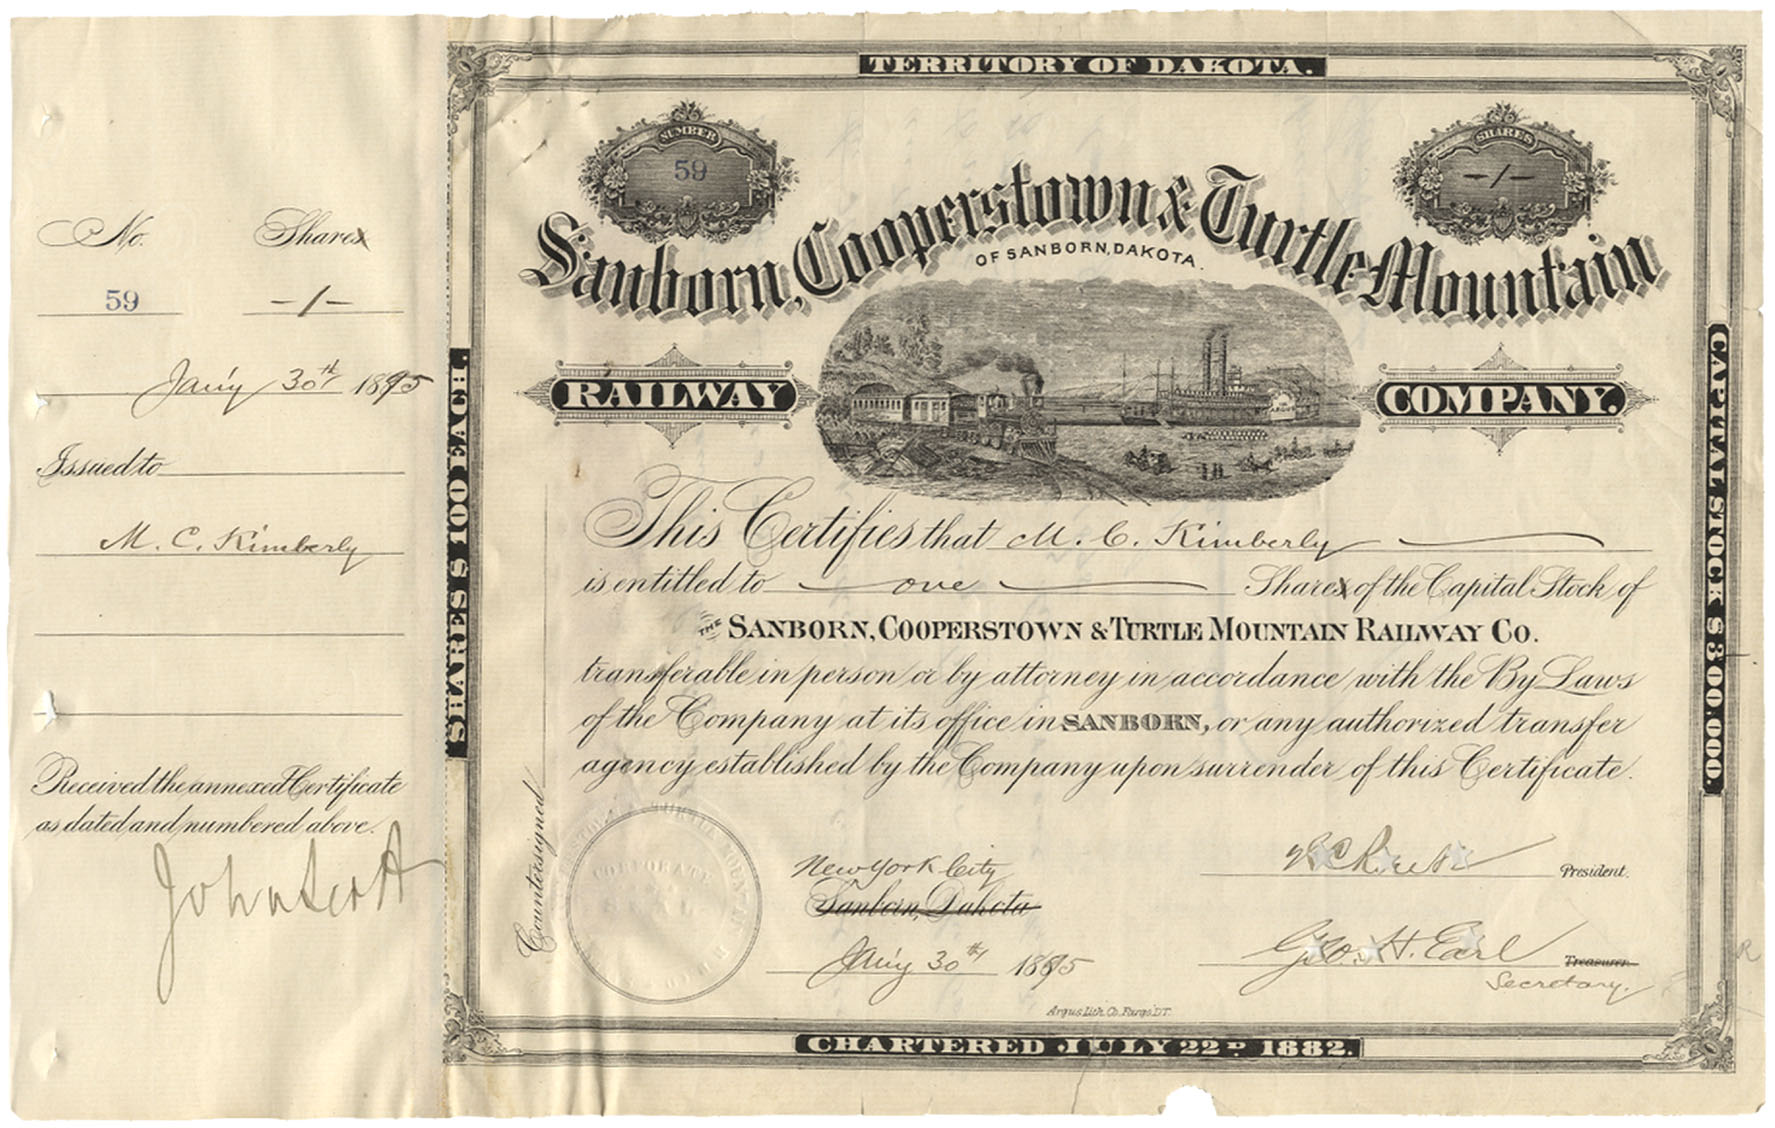 No. Shares
59 -1-
Jan'y 30th 1895
Issued to
M. C. Kimberly
Received the annexed Certificate
as dated and numbered above.
John Scott
SHARES $100 EACH.
TERRITORY OF DAKOTA.
NUMBER
59
SHARES
-1-
Sanborn, Cooperstown & Turtle Mountain
OF SANBORN, DAKOTA.
RAILWAY COMPANY.
ARGUS
This Certifies that M. C. Kimberly
is entitled to one Shares of the Capital Stock of
THE SANBORN, COOPERSTOWN & TURTLE MOUNTAIN RAILWAY CO.
transferable in person or by attorney in accordance with the By Laws
of the Company at its office in SANBORN, or any authorized transfer
agency established by the Company upon surrender of this Certificate.
Countersigned
CORPORATE
New York City
Sanborn, Dakota
Jan'y 30th 1895
President.
Geo. H. Earl Treasurer.
Secretary.
Argus Lith. Co. Fargo D.T.
CHARTERED JULY 22D 1882.
CAPITAL STOCK $800,000.